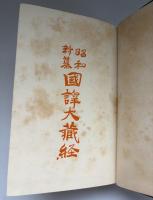 昭和
新纂
國譯大藏經